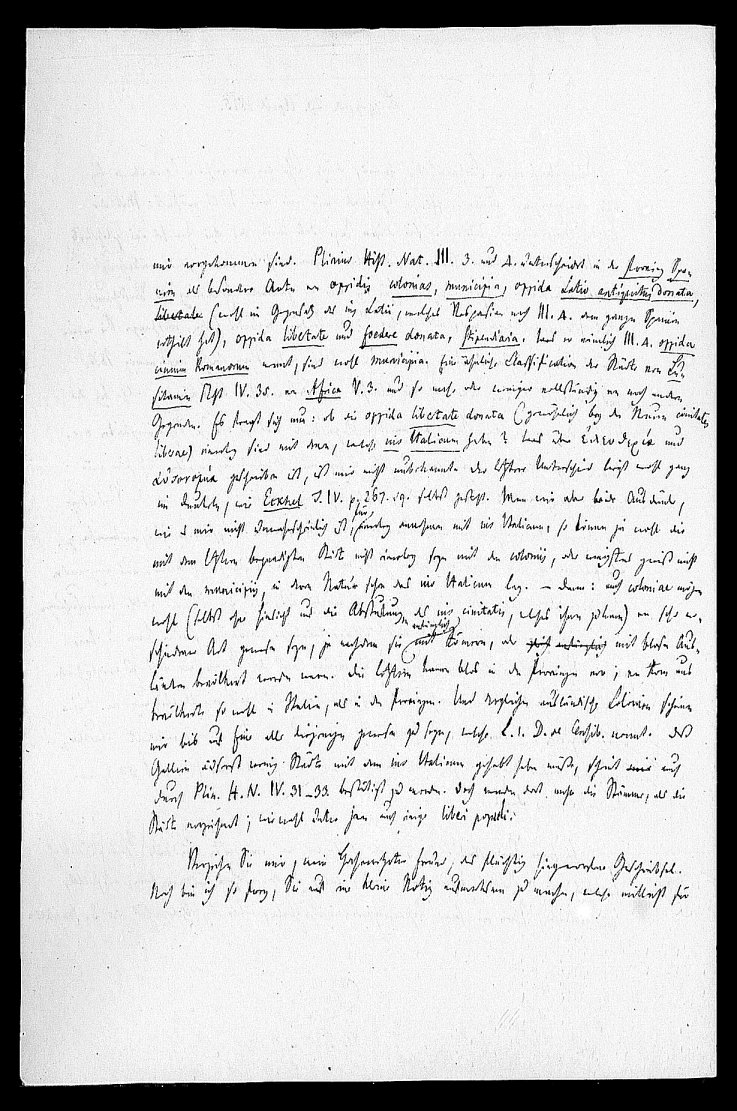 mir vorgekommen sind. Plinius Hist. Nat. III. 3. und 4. unterscheidet in der Provinz Spa-
nien als besondere Arten von oppidis colonias, municipia, oppida Latio antiquitus donata,
libertate (wohl im Gegensatz des ius Latii, welches Vespasian nach III. 4. dem ganzen Spanien
ertheilt hat), oppida libertate und foedere donata, stipendiaria. Was er nämlich III. 4. oppida
civium Romanorum nennt, sind wohl municipia. Eine ähnliche Classification der Städte von Lu-
sitanien steht IV. 35. von Africa V. 3. und so mehr oder weniger vollständig von noch andern
Gegenden. Es fragt sich nun: ob die oppida libertate donata (gewöhnlich bey den Neuern civitates
liberae) einerley sind mit denen, welche ius Italicum haben? Was über Ἐλευθερία und
Αὐτονομία geschrieben ist, ist mir nicht unbekannt. Der letztere Unterschied liegt wohl ganz
im Dunkeln, wie Eckhel T. IV. p. 267. sq. selbst gesteht. Wenn wir aber beide Ausdrücke,
wie es mir nicht unwahrscheinlich ist, für einerley annehmen mit ius Italicum, so können ja wohl die
mit dem letztern begnadigten Städte nicht einerley seyn mit den coloniis, oder wenigstens gewiß nicht
mit den municipiis, in deren Natur schon das ius Italicum lag. – Denn: auch coloniae mögen
wohl (selbst ohne Hinsicht auf die Abstufung des ius civitatis, welches ihnen zukam) von sehr ver-
schiedener Art gewesen seyn, je nachdem sie anfänglich mit Römern, oder mit bloßen Aus-
ländern bevölkert worden waren. Die letztern kamen blos in den Provinzen vor; von Rom aus
bevölkerte so wohl in Italien, als in den Provinzen. Und dergleichen ausländische Colonien scheinen
mir bis auf eine alle diejenigen gewesen zu seyn, welche l. 1. D. de Censib. nennt. Daß
Gallien äußerst wenig Städte mit dem ius Italicum gehabt haben müsse, scheint mir auch
durch Plin. H. N. IV. 31–33. bestätigt zu werden. Doch werden dort mehr die Stämme, als die
Städte verzeichnet; wiewohl unter jenen auch einige liberi populi.
Verzeihn Sie mir, mein hochverehrter Freund, das flüchtig hingeworfene Geschreibsel.
Noch bin ich so frey, Sie auf eine kleine Notiz aufmerksam zu machen, welche vielleicht für